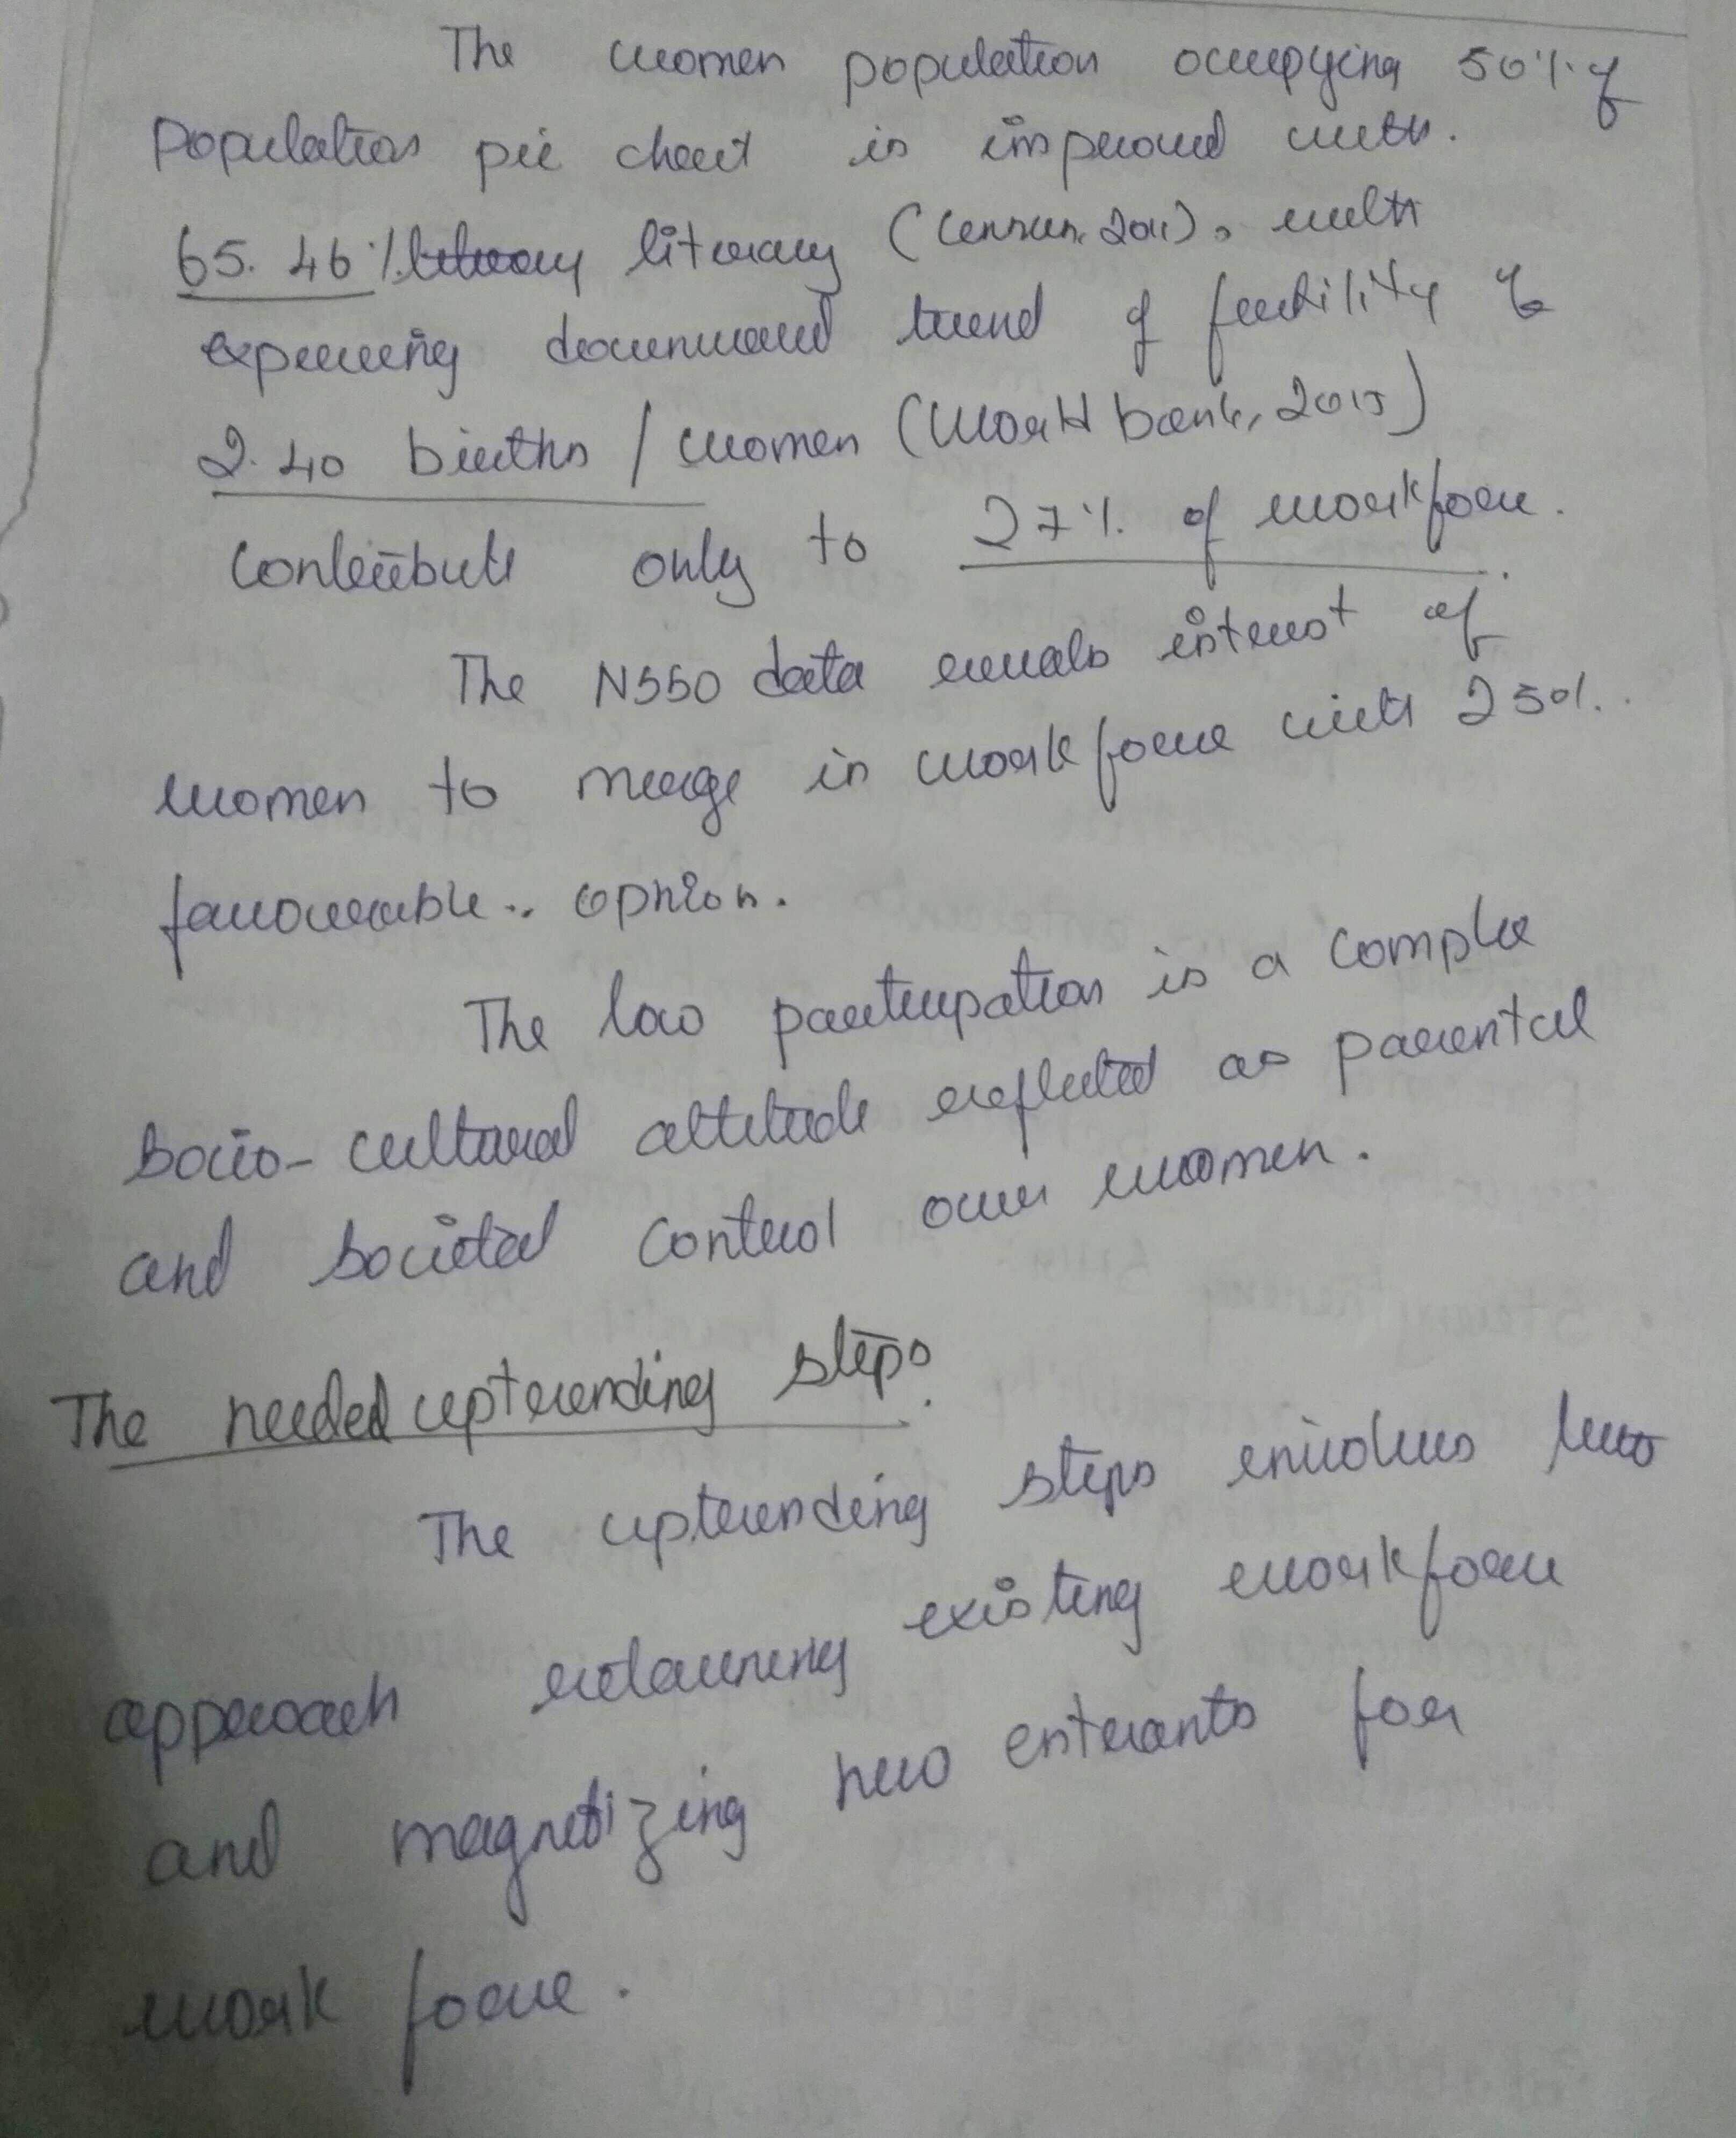 The women population occupying 50% of
Population pie chart is improved with.
65.46% literacy literacy (Census, 2011), with
expericing downward trend of fertility %
2.40 births / women (World bank, 2015)
Contribute only to 27% of workforce.
The NSSO data reveals interest of
women to merge in workforce with 250%.
favourable.. opnion.
The low participation is a complex
Socio-cultural attitude reflected as parental
and Societal Control over women.
The needed uptrending steps
The uptrending steps involves two
approach retaining existing workforce
and magnetizing new entrants for
work force.